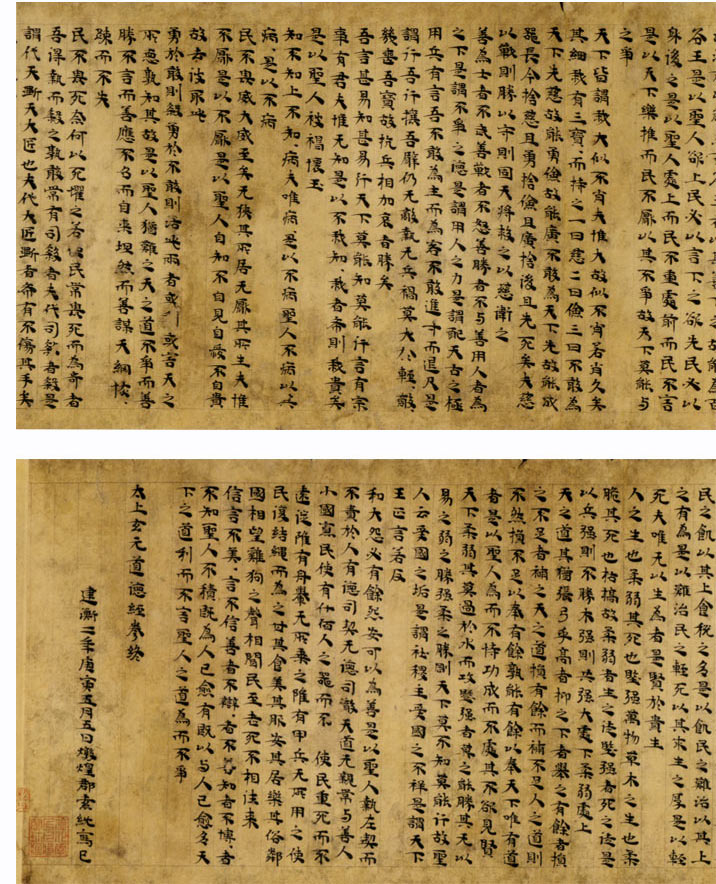 谷王是以聖人欲上民必以言下之欲先民必以
身後之是以聖人處上而民不重處前而民不言
是以天下樂推而民不厭以其不爭故天下莫能与
之爭
天下皆謂我大似不肖夫惟大故似不肖若肖久矣
其細我有三寶而持之一曰慈二曰儉三曰不敢為
天下先慈故能勇儉故能廣不敢為天下先故能成
器長今捨慈且勇捨儉且廣捨後且先死矣夫慈
以戰則勝以守則固天將救之以慈衛之
善為士者不武善戰者不怒善勝者不与善用人者為
之下是謂不爭之德是謂用人之力是謂配天古之極
用兵有言吾不敢為主而為客不敢進寸而退尺是
謂行吾行攘吾臂仍无敵執无兵禍莫大於輕敵
幾喪吾寶故抗兵相加哀者勝矣
吾言甚易知甚易行天下莫能知莫能行言有宗
事有君夫惟无知是以不我知、我者希則我貴矣
是以聖人被褐懷玉
知不知上不知、病夫唯病、是以不病聖人不病以其
病、是以不病
民不畏威大威至矣无狹其所居无厭其所生夫惟
不厭是以不厭是以聖人自知不自見自愛不自貴
故去彼取此
勇於敢則殺勇於不敢則活此兩者或利或害天之
所惡孰知其故是以聖人猶難之天之道不爭而善
勝不言而善應不召而自來坦然而善謀天網恢、
踈而不失
民不畏死奈何以死懼之若使民常畏死而為奇者
吾得執而殺之孰敢常有司殺者夫代司殺者殺是
謂代大斲夫大匠也夫代大匠斲者希有不傷其手矣
民之飢以其上食稅之多是以飢民之難治以其上
之有為是以難治民之輕死以其求生之厚是以輕
死夫唯无以生為者是賢於貴生
人之生也柔弱其死也堅强萬物草木之生也柔
脆其死也枯槁故柔弱者生之徒堅强者死之徒是
以兵强則不勝木强則共强大處下柔弱處上
天之道其猶張弓乎高者抑之下者舉之有餘者損
之不足者補之天之道損有餘而補不足人之道則
不然損不足以奉有餘孰能有餘以奉天下唯有道
者是以聖人為而不恃功成而不處其不欲見賢
天下柔弱其莫過於水而攻堅强者莫之能勝其无以
易之弱之勝强柔之勝剛天下莫不知莫能行故聖
人云受國之垢是謂社稷主受國之不祥是謂天下
王正言若反
和大怨必有餘怨安可以為善是以聖人執左契而
不責於人有德司契无德司徹天道无親常与善人
小國寡民使有什佰人之器而不 使民重死而不
遠徙雖有舟轝无所乘之雖有甲兵无所用之使
民復結繩而為之甘其食美其服安其居樂其俗鄰
國相望雞狗之聲相聞民至老死不相往來
信言不美、言不信善者不辯、者不善知者不博、者
不知聖人不積既為人已愈有既以与人已愈多天
下之道利而不言聖人之道為而不爭
太上玄元道德經卷終
建衡二年庚寅五月五日燉煌郡索紞寫已